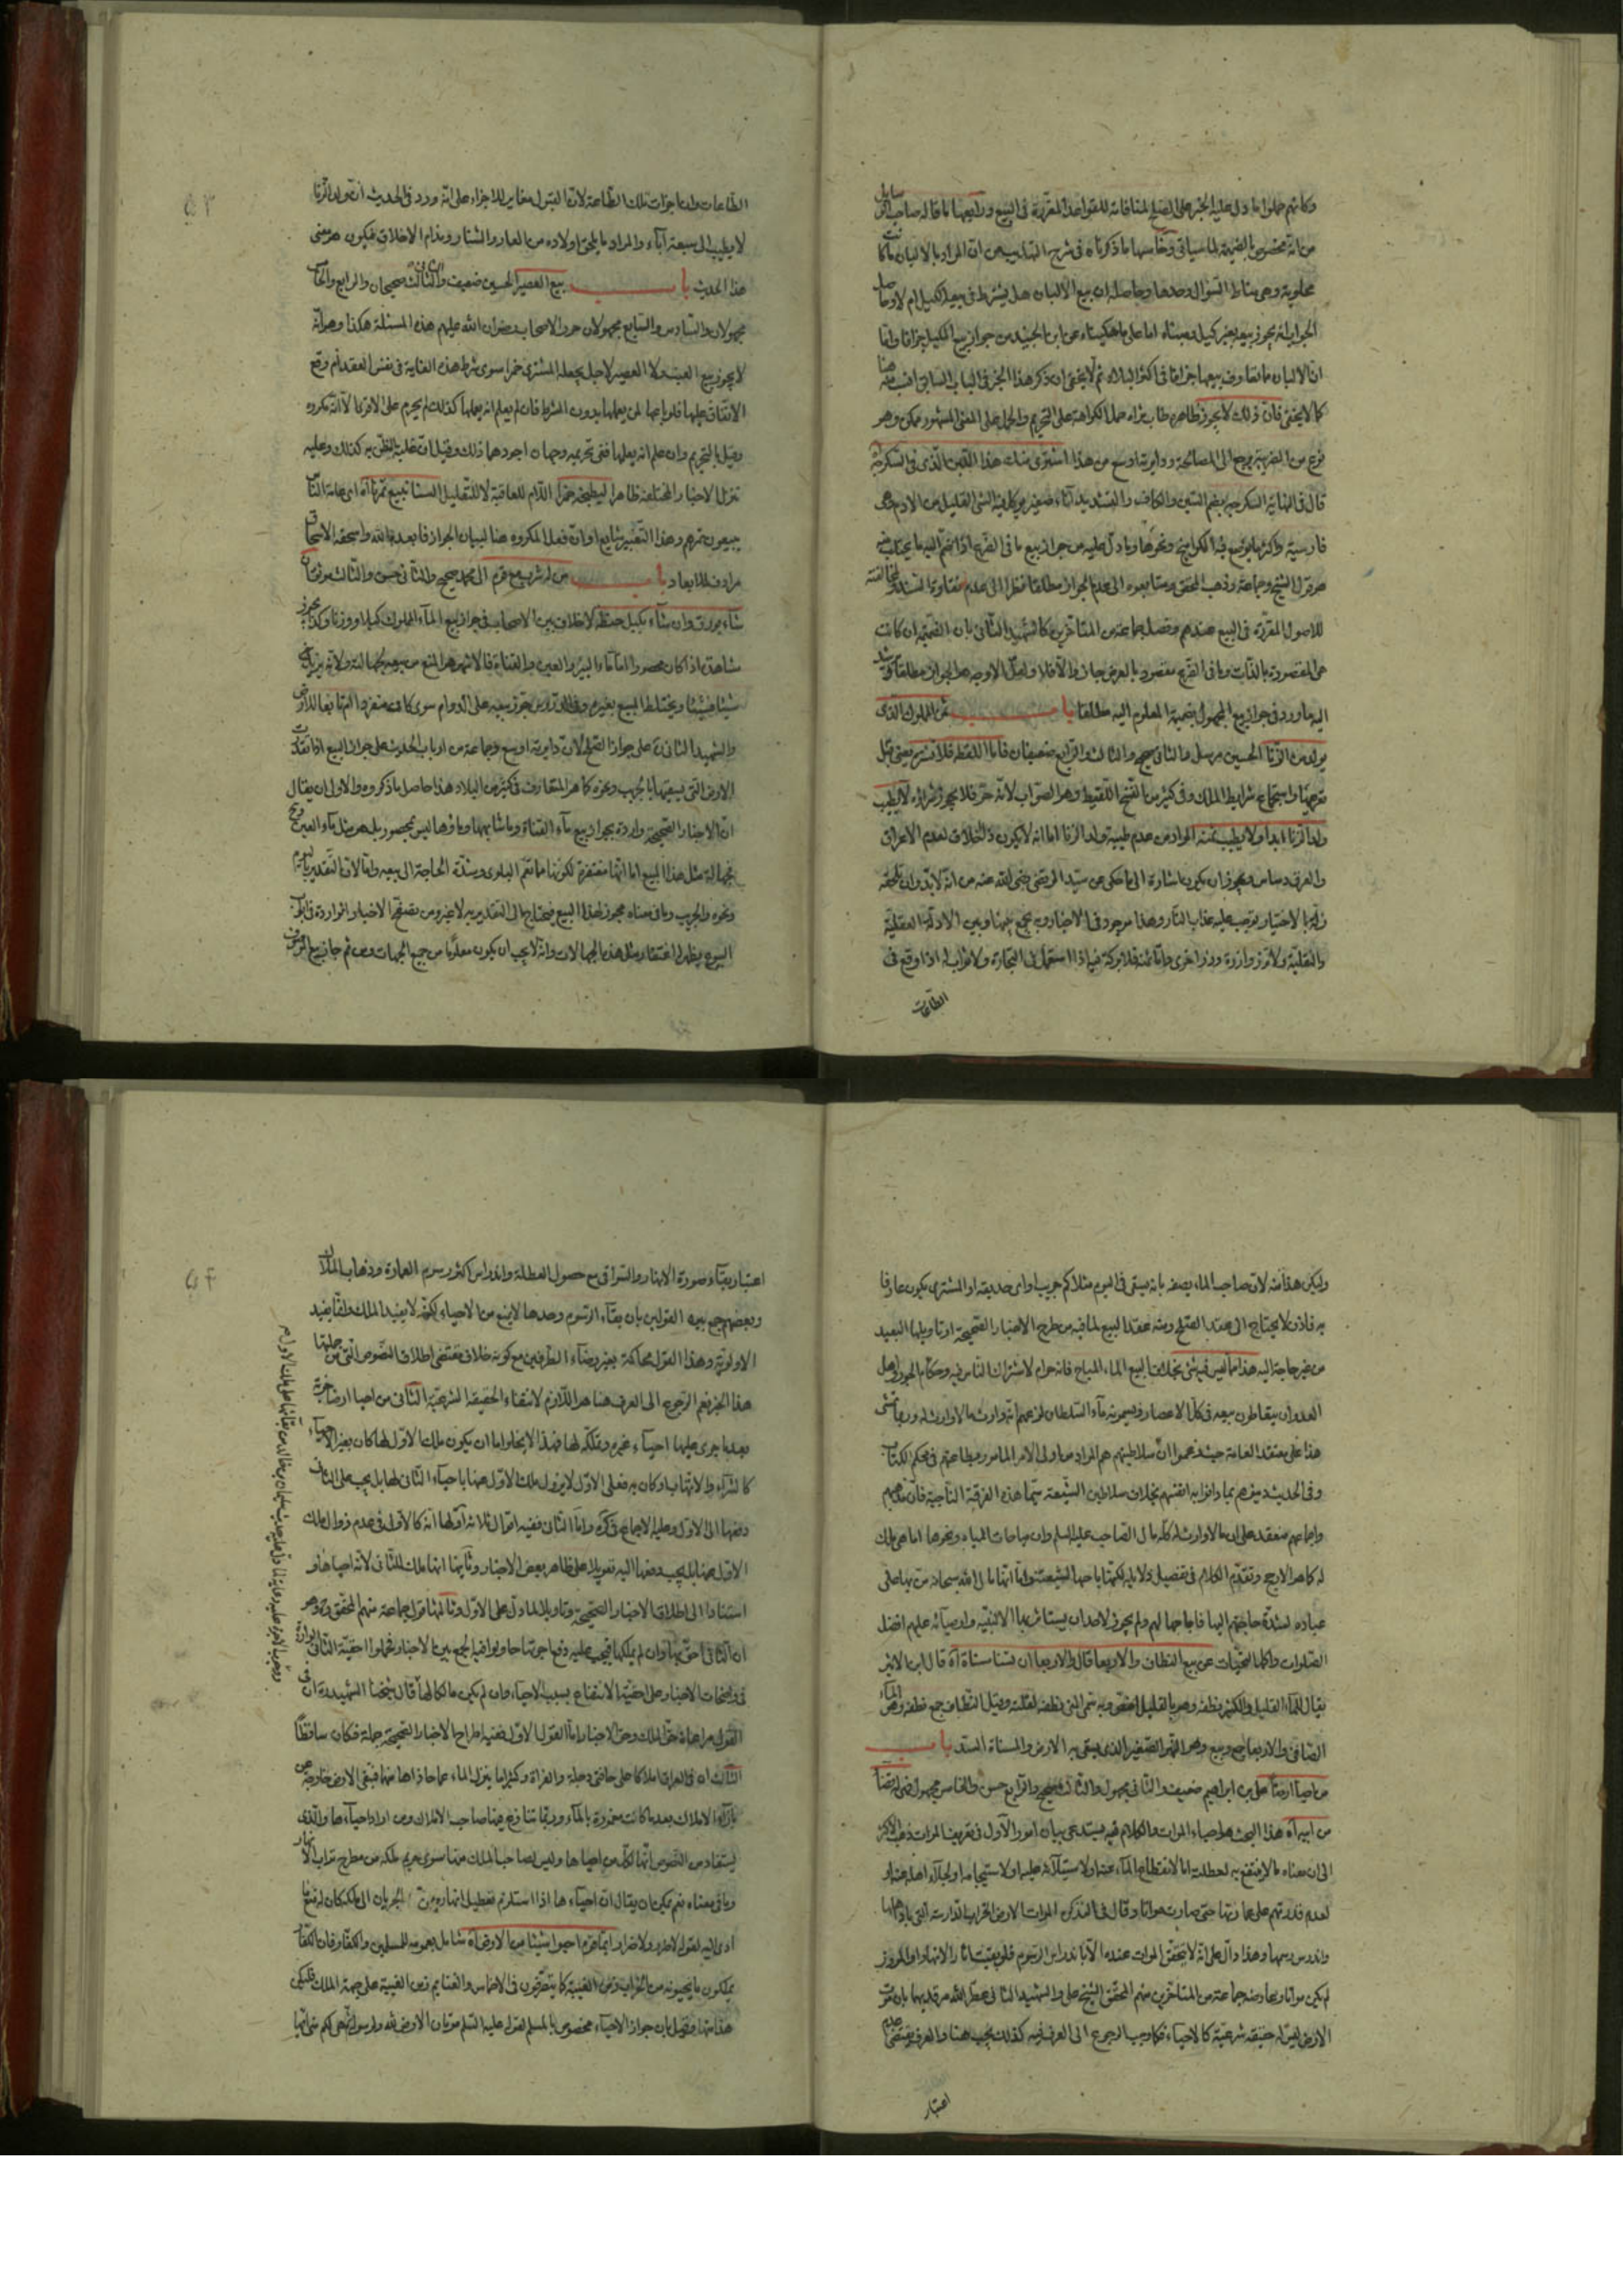 وكانهم حملوا ما دل عليه الخبر على الصلح لمنافاته للقواعد المقررة في البيع ورابعها ما قاله صاحب
من انه مخصوص بالضميمة لما سياتي وخامسها ما ذكرناه في شرح التهذيب من ان المراد بالالبان ما كا
محلوبة وهي مناط السؤال وحدها وحاصله ان بيع الالبان هل يشترط في بيعه الكيل ام لا وحاصل
الجواب انه يجوز بيعه بغير كيل ومبناه اما على ما حكيناه عن ابن الجنيد من جواز بيع المكيل جزافا واما
ان الالبان ما تعارف بيعها جزافا في اكثر البلاد ثم لا يخفى ان ذكر هذا الخبر في الباب السابق انسب منه هنا
كما لا يخفى فان ذلك لا يجوز ظاهره طاب ثراه حمل الكراهة على التحريم والحمل على المعنى المشهور ممكن وهو
نوع من الضريبة يرجع الى المصالحة ودايرته اوسع من هذا اشترى منك هذا اللبن الذي في السكرجة
قال في النهاية السكرجة بضم السين والكاف والتشديد اناء صغير يوكل فيه الشي القليل من الادم وهي
فارسية واكثرها يوضع فيه الكوامخ ونحوها وما دل عليه من جواز بيع ما في الضرع اذا انضم اليه ما يحتلب منه
هو قول الشيخ وجماعة وذهب المحقق ومتابعوه الى عدم الجواز مطلقا نظرا الى عدم نقاوة السند ولمخالفته
للاصول المقررة في البيع عندهم وفصل جماعة من المتاخرين كالشهيد الثاني بان الضميمة ان كانت
هي المقصودة بالذات وما في الضرع مقصود بالعرض جاز والا فلا ولعل الاوجه هو الجواز مطلقا
اليه ما ورد في جواز بيع المجهول بضميمة المعلوم اليه مطلقا باب ثمن المملوك الذي
يولد من الزنا الحسين مرسل والثاني صحيح والثالث والرابع ضعيفان فاما اللقطة فلا تشتر يعني قبل
تعريفها واجتماع شرايط الملك وفي كثير من النسخ اللقيط وهو الصواب لانه حر فلا يجوز شراؤه لا يطيب
ولد الزنا ابدا ولا يطيب ثمنه المراد من عدم طيبة ولد الزنا اما انه لا يكون ذا اخلاق لعدم الاعراق
والعرق دساس ويجوز ان يكون اشارة الى ما حكى عن سيد المرتضى رضي الله عنه من انه لابد وان يلحقه
زلة بالاختيار توجب عليه عذاب النار وهذا موجود في الاخبار وبه يجمع بينها وبين الادلة العقلية
والنقلية ولا تزر وازرة وزر اخرى واما ثمنه فلا بركة فيه اذا استعمل في التجارة ولا ثواب له اذا وقع في
الطاعات
الطاعات وان اجزات تلك الطاعة لان القبول مغاير للاجزاء على انه ورد في الحديث ان ولد الزنا
لا يطيب الى سبعة آباء والمراد ما يلحق اولاده من العار والشنار ورذام الاخلاق فيكون هو معنى
هذا الحديث باب بيع العصير الحسين ضعيف والثاني والثالث صحيحان والرابع والخامس
مجهولان والسادس والسابع مجهولان حرر الاصحاب رضوان الله عليهم هذه المسئلة هكذا وهو انه
لا يجوز بيع العنب ولا العصير لاجل يجعله المشترى خمرا سوى شرط هذه الغاية في نفس العقد ام وقع
الاتفاق عليها فلو باعها لمن يعملها بدون الشرط فان لم يعلم انه يعملها كذلك لم يحرم على الاقوى الا انه مكروه
وقيل بالتحريم وان علم انه يعملها ففي تحريمه وجهان اجودهما ذلك وقيل ان غلبة الظن به كذلك وعليه
تنزل الاخبار المختلفة ظاهرا ليطبخه خمرا اللام للعاقبة لا للتعليل السنا نبيع تمرنا اه اي عامة الناس
يبيعون تمرهم وهذا التعبير شايع او ان فعل المكروه هنا لبيان الجواز فابعده الله واسحقه الاسحاق
مرادف للابعاد باب من له شرب مع قوم الى محمد صحيح والثاني حسن والثالث موثق ان
شاء بورق وان شاء بكيل حنطة لا خلاف بين الاصحاب في جواز بيع الماء المملوك كيلا ووزنا وكذا يجوز
مشاهدة اذا كان محصورا اما ماء البئر والعين والقناة فالاشهر هو المنع من بيعه لجهالته ولانه يزيد
شيئا فشيئا ويختلط المبيع بغيره وفي الدروس جوز بيعه على الدوام سوى كان منفردا ام تابعا للارض
والشهيد الثاني على جواز الصلح لان دايرته اوسع وجماعة من ارباب الحديث على جواز البيع اذا تقدر
الارض التي يسقيها بالجريب ونحوه كما هو المتعارف في كثير من البلاد هذا حاصل ما ذكروه والاولى ان يقال
ان الاخبار الصحيحة واردة بجواز بيع ماء القناة وما شابهها وماؤها ليس بمحصور بل هو مثل ماء العين
فجهالة مثل هذا المبيع اما انها مغتفرة لكونها ما تعم البلوى وشدة الحاجة الى بيعه واما لان التقدير باليوم
ونحوه والجريب وما في معناه مجوز لهذا المبيع فيحتاج الى التقدير به لا غير ومن تصفح الاخبار الواردة في باب
البيوع يظهر له اغتفار مثل هذه الجهالات وانه لا يجب ان يكون معلوما من جميع الجهات ومن ثم جاز بيع
وليكن هذا منه لان صاحب الماء يصفه بانه يسقى في اليوم مثلا كم جريب او اي حديقة او المشترى يكون عارفا
به فاذن لا يحتاج الى عقد الصلح ومنه عقد البيع لما فيه من طرح الاخبار الصحيحة او تاويلها البعيد
من غير حاجة اليه هذا مما ليس فيه شي بخلاف البيع الماء المباح فانه حرام لاشتراك الناس فيه وحكام الجور واهل
العدوان يتعاطون بيعه في كل الاعصار ويسمونه ماء السلطان لزعمهم انه وارث ما لا وارث له وربما تمشى
هذا على معتقد العامة حيث زعموا ان سلاطينهم هم المراد من اولى الامر المامور بطاعتهم في محكم الكتاب
وفي الحديث دينوهم بما دانوا به انفسهم بخلاف سلاطين الشيعة سيما هذه الفرقة الناجية فان مذهبهم
واجماعهم منعقد على ان ما لا وارث له كله مال الصاحب عليه السلام وان مباحات المياه ونحوها اما هي ملك
له كما هو الارجح وتقدم الكلام في تفصيل دلايله لكنها اباحها لشيعته واما انها مال الله سبحانه من بها على
عباده لشدة حاجتهم اليها فاباحها لهم ولم يجوز لاحد ان يستاثر بها الا لنبيه واوصيائه عليهم افضل
الصلوات واكمل التحيات عن بيع النطاف والاربعا قال والاربعا ان تسنا مسناة اه قال ابن الاثير
يقال للماء القليل والكثير نطفة وهو بالقليل اخص وبه سمى المني نطفة لقلته وقيل النطاف جمع نطفة وهي الماء
الصافي والاربعا جمع ربيع وهو النهر الصغير الذي يسقى به الارض والمسناة السد باب
من احيا ارضا على بن ابراهيم ضعيف والثاني مجهول والثالث صحيح والرابع حسن والخامس مجهول
من اسراه هذا البحث هو احياء الموات والكلام فيه يستدعى بيان امور الاول في تعريف الموات ذهب الاكثر
الى ان معناه ما لا ينتفع به لعطلته اما لانقطاع الماء عنه او لاستيلائه عليه او لاستيجامه او لجلاء اهله عنه او
لعدم قدرتهم على عمارتها حتى صارت مواتا وقال في التذكرة الموات الارض الخراب الدارسة التي باد اهلها
واندرس رسمها وهذا دال على انه لا يتحقق الموات عنده الا باندراس الرسوم فلو بقيت اثار الانهار او المروز
لم يكن مواتا وعارضه جماعة من المتاخرين منهم المحقق الشيخ على والشهيد الثاني عطر الله مرقديهما بان موت
الارض ليس له حقيقة شرعية كالاحياء فكما وجب الرجوع الى العرف فيه كذلك يجب هنا والعرف يقتضى عدم
اعتبار
اعتبار بقاء صورة الانهار والسواقي مع حصول العطلة واندراس اكثر رسوم العمارة وذهاب الملاك
وبعضهم جمع بين القولين بان بقاء الرسوم وحدها لا يمنع من الاحياء لكنه لا يفيد الملك وانما يفيد
الاولوية وهذا القول محاكمة بغير رضاء الطرفين مع كونه خلاف مقتضى اطلاق النصوص التي من جملتها
هذا الخبر نعم الرجوع الى العرف هنا هو اللازم لانتفاء الحقيقة الشرعية الثاني من احيا ارضا خربة
بعد ما جرى عليها احياء غيره وتملكه لها فهذا لا يخلو اما ان يكون ملك الاول لها كان بغير الاحياء
كالشراء والاتهاب وكان به فعلى الاول لا يزول ملك الاول عنها باحياء الثاني لها بل يجب على الثاني
دفعها الى الاول وعليه الاجماع في كره واما الثاني ففيه اقوال ثلاثة اولها انه كالاول في عدم زوال ملك
الاول عنها بل يجب دفعها اليه تعويلا على ظاهر بعض الاخبار وثانيها انها ملك للثاني لانه احياها و
استنادا الى اطلاق الاخبار الصحيحة وتاويلا لما دل على الاول وثالثها قول جماعة منهم المحقق وهو
ان الثاني احق بها وان لم يملكها فيجب عليه دفع اجرتها حاولوا فيه الجمع بين الاخبار فحملوا احقية الثاني الواردة
في واضحات الاخبار على احقية الانتفاع بسبب الاحياء وان لم يكن مالكا لها قال شيخنا الشهيد ان في
القول مراعاة حق الملك وحق الاخبار اما القول الاول ففيه اطراح الاخبار الصحيحة جملة فكان ساقطا
الثالث ان في العراق املاكا على حافتي دجلة والفراة وكثيرا ما ينزل الماء عما حاذاها منهما فتبقى الارض خارجة عن
بازاء الاملاك بعد ما كانت مغمورة بالماء وربما تنازع فيها صاحب الاملاك ومن اراد احياءها والذي
يستفاد من النصوص انها لكل من احياها وليس لصاحب الملك منها سوى حريم ملكه من مطرح تراب الانهار
وما في معناه نعم يمكن ان يقال ان احياءها اذا استلزم تعطيل انهاره من الجريان الى ملكه كان له منعها
ادى اليه لقوله لا ضرر ولا ضرار ايما قوم احيوا شيئا من الارض اه شامل بعمومه للمسلمين والكفار فان الكفار
يملكون ما يحيونه من الخراب زمن الغيبة كما يتصرفون في الاخماس والغنايم زمن الغيبة على جهة الملك فليكن
هذا منها وقيل بان جواز الاحياء مخصوص بالمسلم لقوله عليه السلم موتان الارض لله ولرسوله ثم هي لكم مني ايها